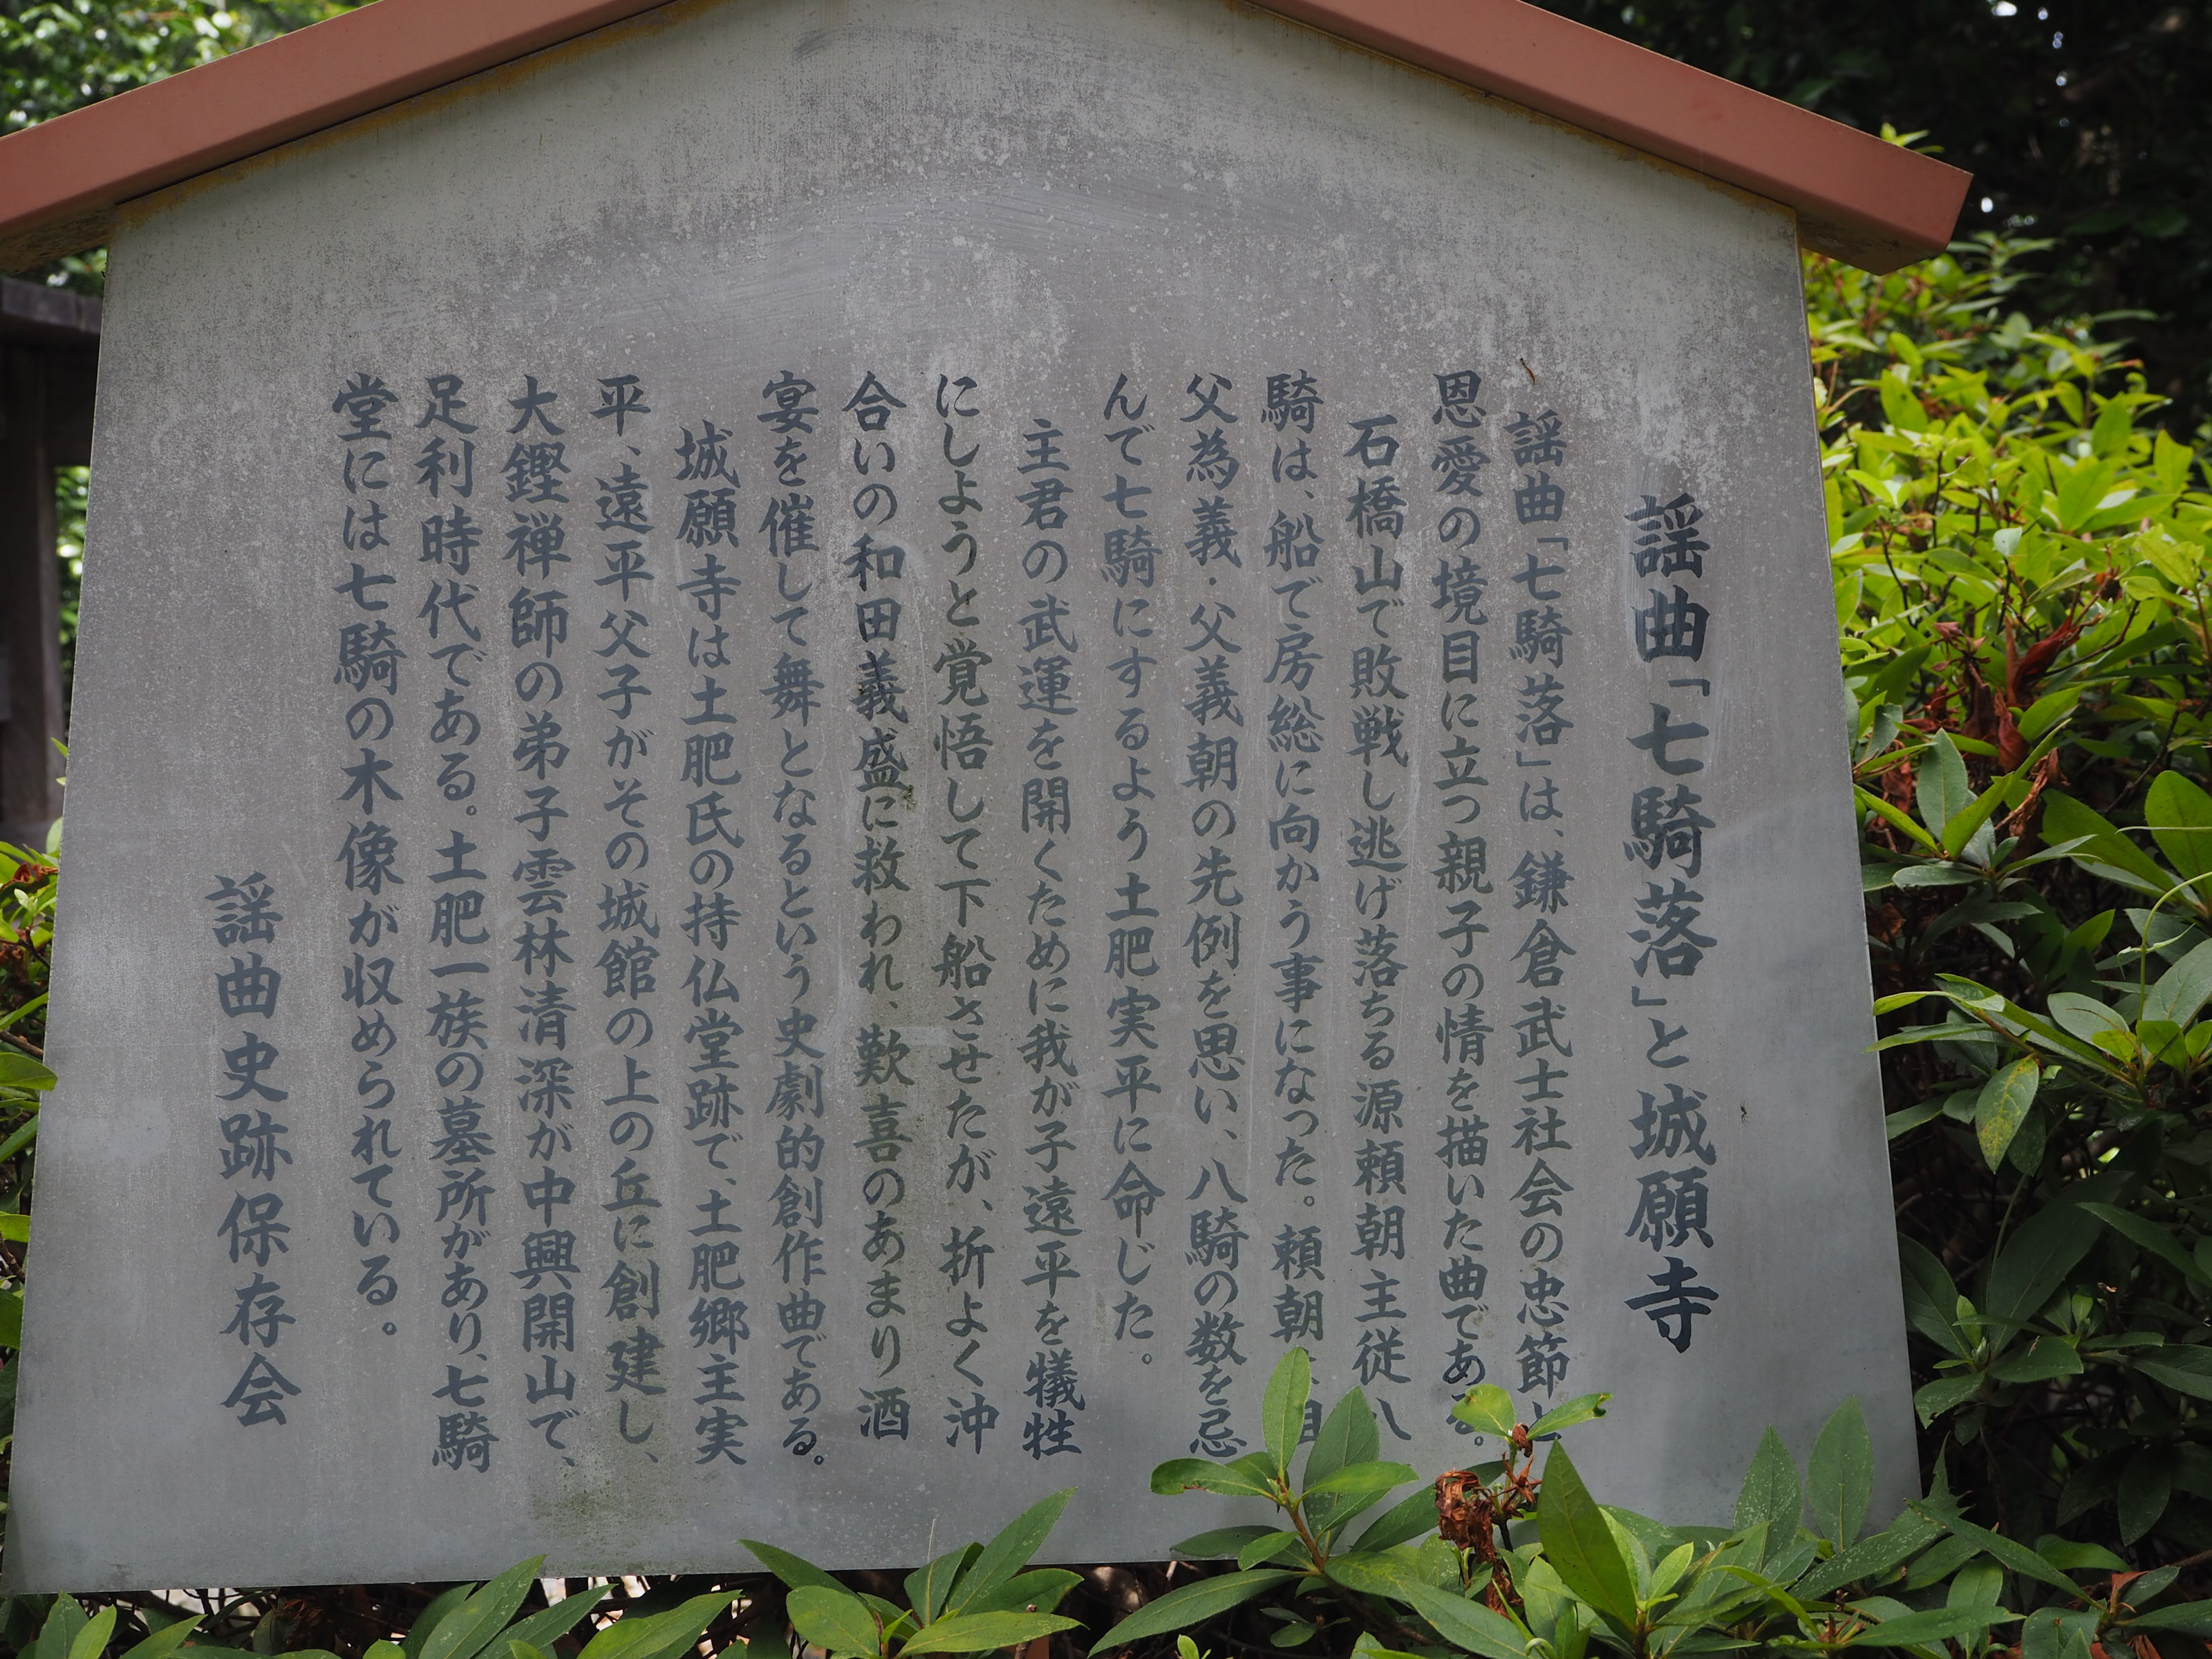 謡曲「七騎落」と城願寺
謡曲「七騎落」は、鎌倉武士社会の忠節と
恩愛の境目に立つ親子の情を描いた曲である。
石橋山で敗戦し逃げ落ちる源頼朝主従八
騎は、船で房総に向かう事になった。頼朝は祖
父為義・父義朝の先例を思い、八騎の数を忌
んで七騎にするよう土肥実平に命じた。
主君の武運を開くために我が子遠平を犠牲
にしようと覚悟して下船させたが、折よく沖
合いの和田義盛に救われ、歓喜のあまり酒
宴を催して舞となるという史劇的創作曲である。
城願寺は土肥氏の持仏堂跡で、土肥郷主実
平、遠平父子がその城館の上の丘に創建し、
大鏗禅師の弟子雲林清深が中興開山で、
足利時代である。土肥一族の墓所があり、七騎
堂には七騎の木像が収められている。
謡曲史跡保存会